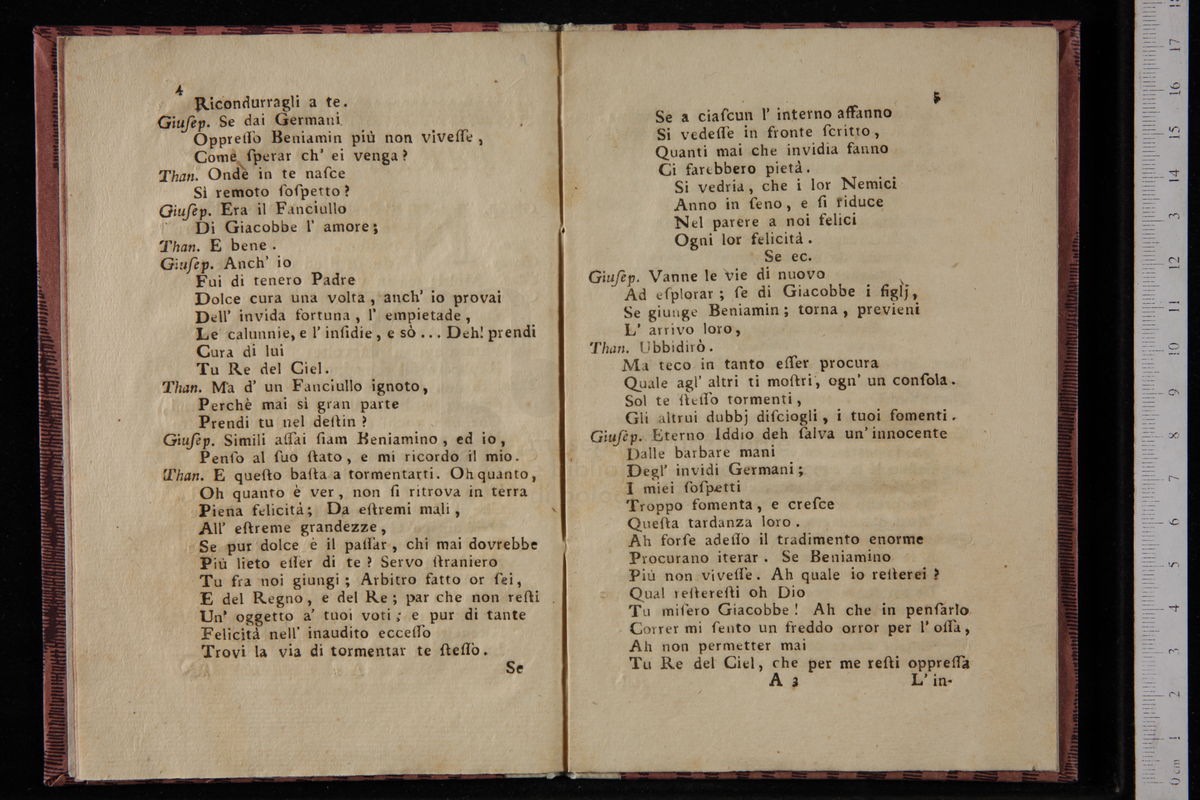 4
Ricondurragli a te.
Giuſep. Se dai Germani
Oppreſſo Beniamin più non viveſſe,
Come ſperar ch' ei venga?
Than. Onde in te naſce
Sì remoto ſoſpetto?
Giuſep. Era il Fanciullo
Di Giacobbe l' amore;
Than. E bene.
Giuſep. Anch' io
Fui di tenero Padre
Dolce cura una volta, anch' io provai
Dell' invida fortuna, l' empietade,
Le calunnie, e l' inſidie, e sò... Deh! prendi
Cura di lui
Tu Re del Ciel.
Than. Ma d' un Fanciullo ignoto,
Perchè mai sì gran parte
Prendi tu nel deſtin?
Giuſep. Simili aſſai ſiam Beniamino, ed io,
Penſo al ſuo ſtato, e mi ricordo il mio.
Than. E queſto baſta a tormentarti. Oh quanto,
Oh quanto è ver, non ſi ritrova in terra
Piena felicità; Da eſtremi mali,
All' eſtreme grandezze,
Se pur dolce è il paſſar, chi mai dovrebbe
Più lieto eſſer di te? Servo ſtraniero
Tu fra noi giungi; Arbitro fatto or ſei,
E del Regno, e del Re; par che non reſti
Un' oggetto a' tuoi voti; e pur di tante
Felicità nell' inaudito ecceſſo
Trovi la via di tormentar te ſteſſo.
Se
5
Se a ciaſcun l' interno affanno
Si vedeſſe in fronte ſcritto,
Quanti mai che invidia fanno
Ci farebbero pietà.
Si vedria, che i lor Nemici
Anno in ſeno, e ſi riduce
Nel parere a noi felici
Ogni lor felicità.
Se ec.
Giuſep. Vanne le vie di nuovo
Ad eſplorar; ſe di Giacobbe i figlj,
Se giunge Beniamin; torna, previeni
L' arrivo loro,
Than. Ubbidirò.
Ma teco in tanto eſſer procura
Quale agl' altri ti moſtri, ogn' un conſola.
Sol te ſteſſo tormenti,
Gli altrui dubbj diſciogli, i tuoi fomenti.
Giuſep. Eterno Iddio deh ſalva un' innocente
Dalle barbare mani
Degl' invidi Germani;
I miei ſoſpetti
Troppo fomenta, e creſce
Queſta tardanza loro.
Ah forſe adeſſo il tradimento enorme
Procurano iterar. Se Beniamino
Più non viveſſe. Ah quale io reſterei?
Qual reſtereſti oh Dio
Tu miſero Giacobbe! Ah che in penſarlo
Correr mi ſento un freddo orror per l' oſſa,
Ah non permetter mai
Tu Re del Ciel, che per me reſti oppreſſa
A 3 L' in-